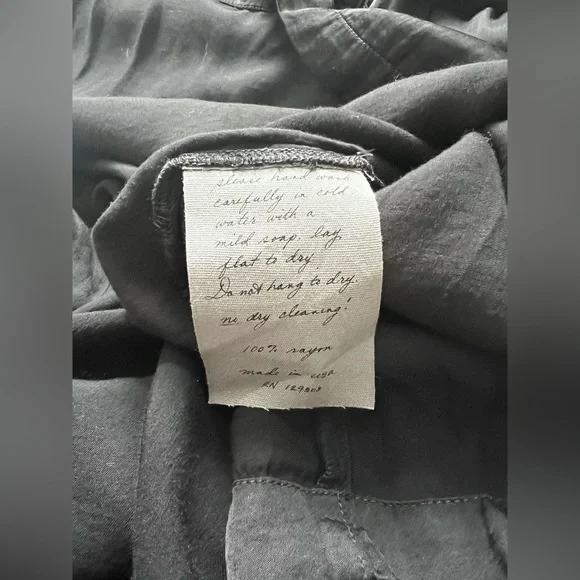 please hand wash
carefully in cold
water with a
mild soap. lay
flat to dry
Do not hang to dry.
no dry cleaning!
100% rayon
made in USA
RN 129808